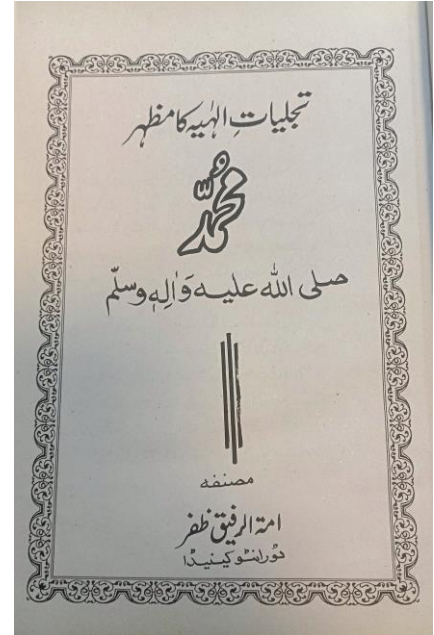 تجلیاتِ الٰہیہ کا مظہر
محمدؐ
صلی اللہ علیہ وَاٰلِہٖ وسلّم
مصنفہ
امۃ الرفیق ظفر
ٹورانٹو کینیڈا